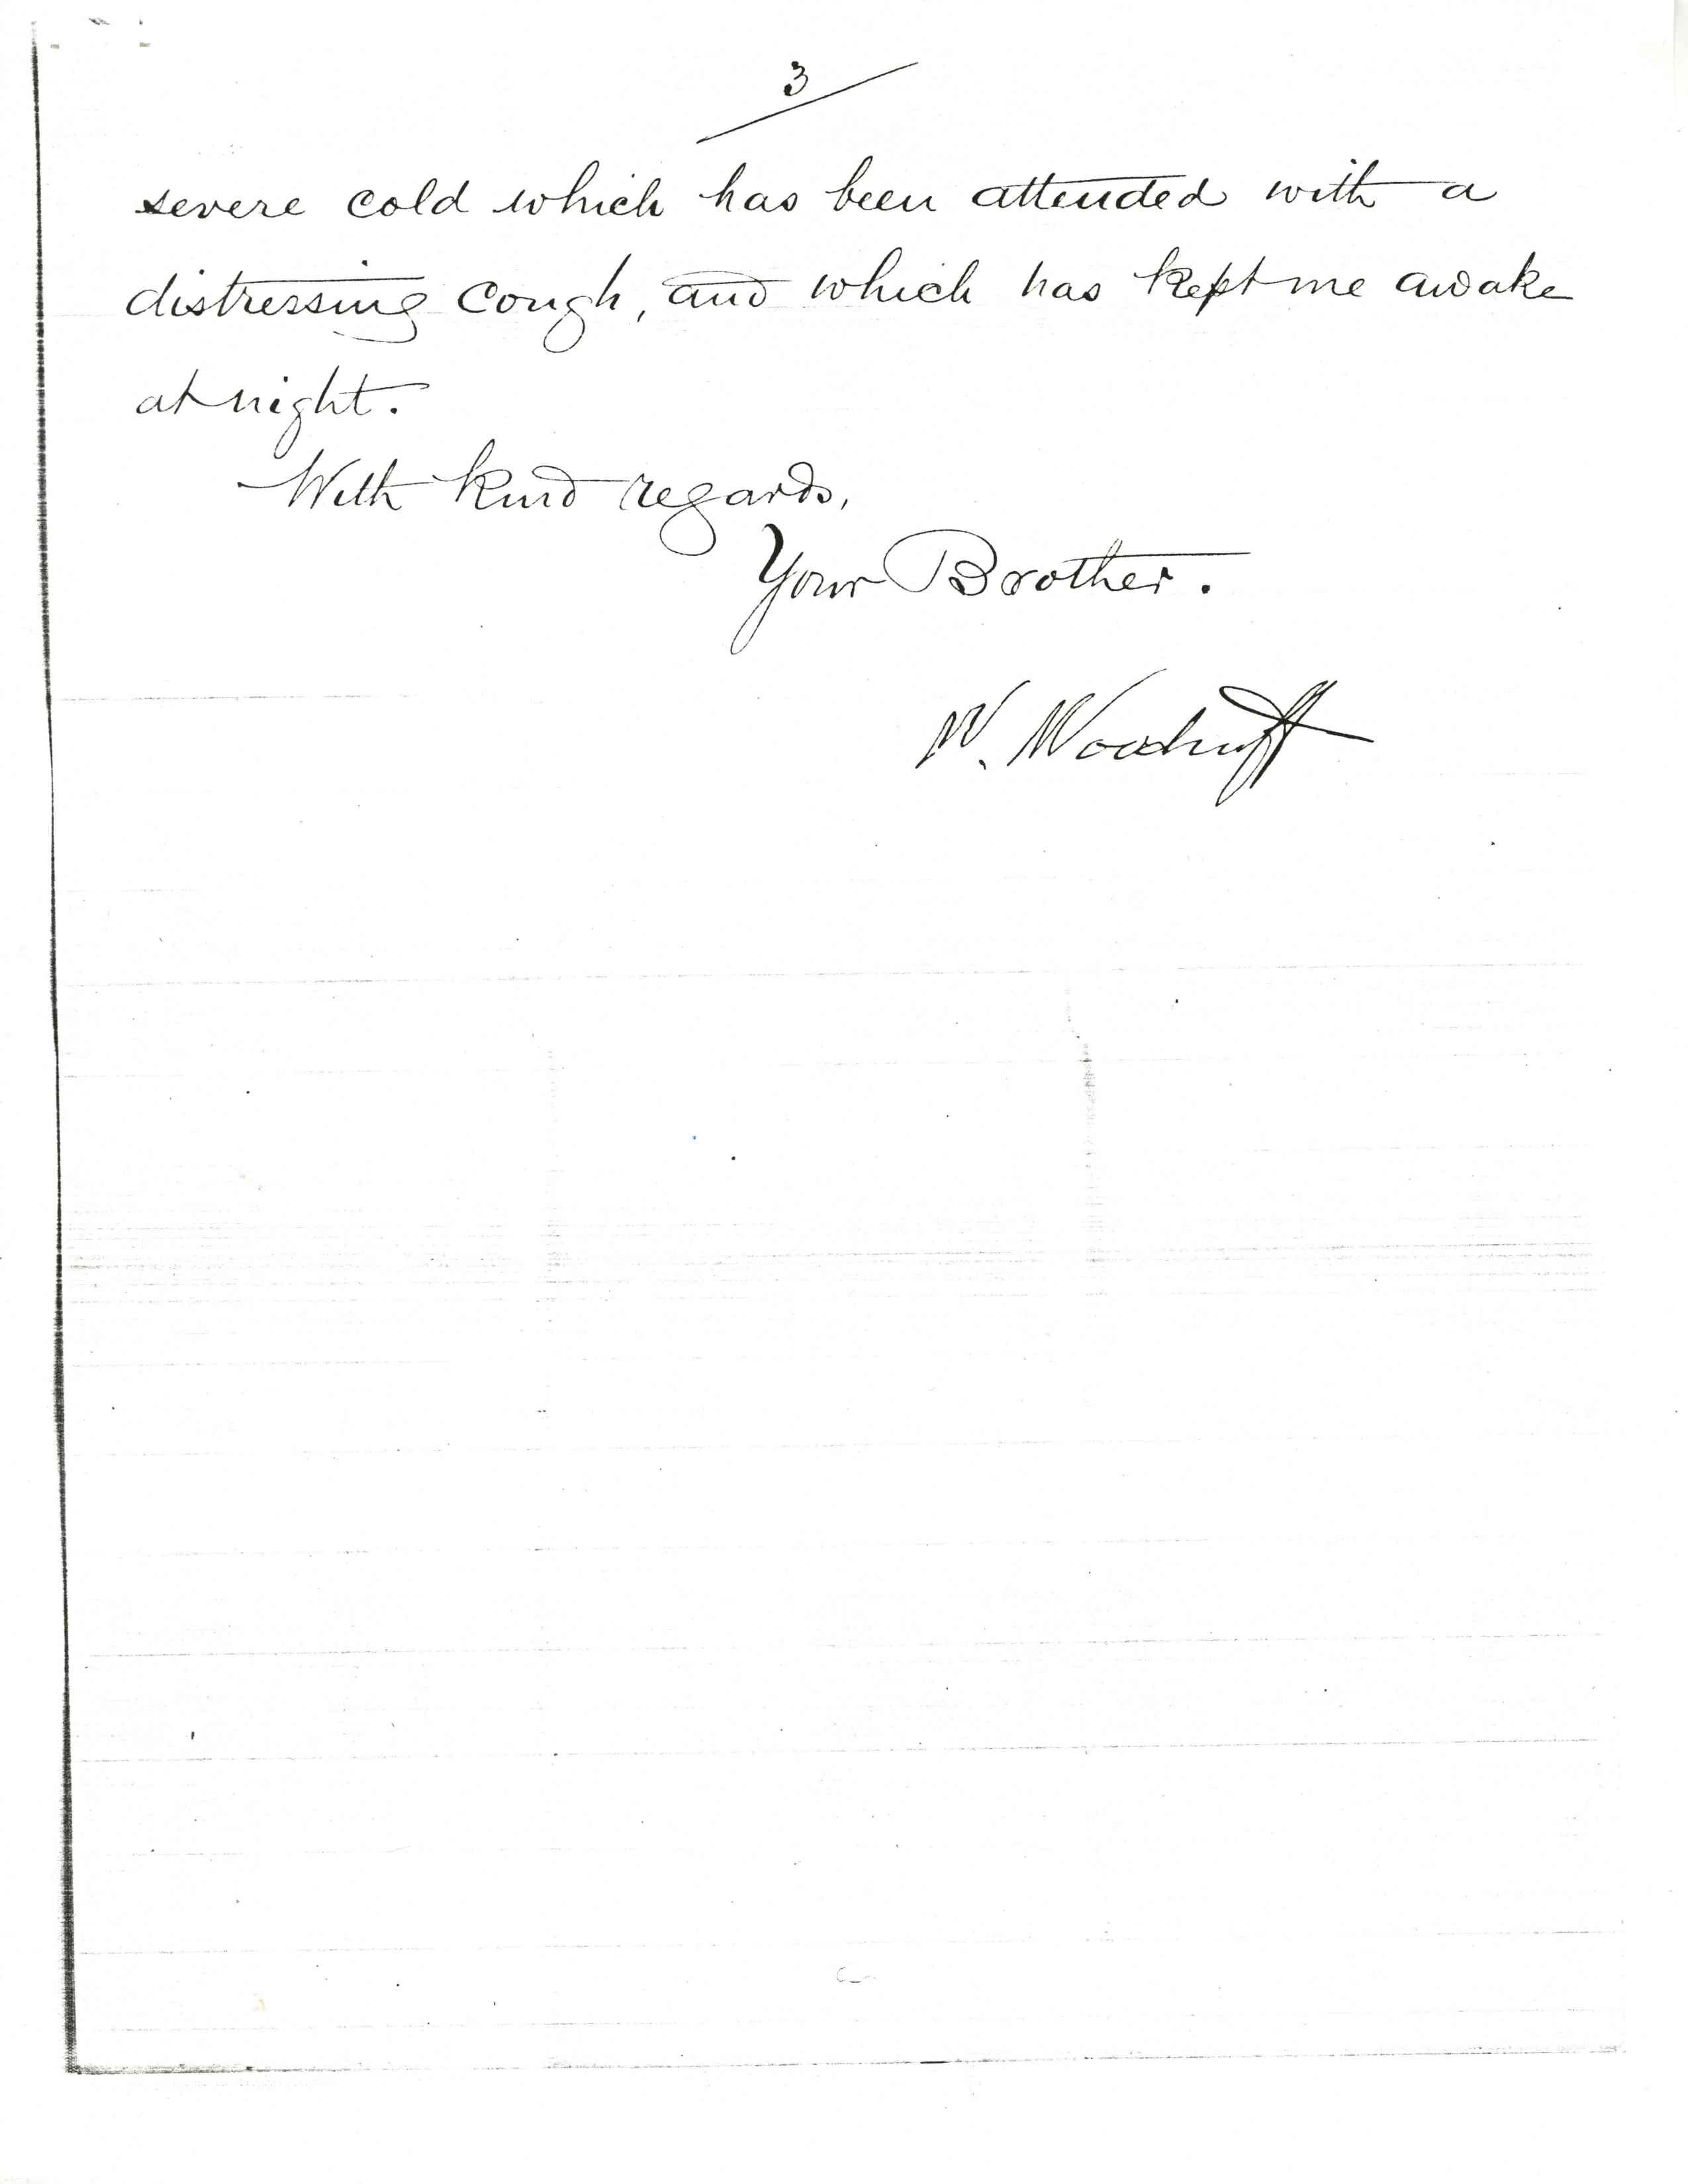 3
severe cold which has been attended with a
distressing cough, and which has kept me awake
at night.
With kind regards,
Your Brother.
W. Woodruff